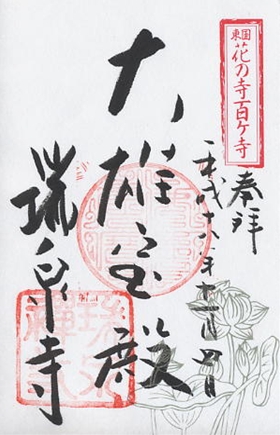 東国
花の寺百ヶ寺
奉拝
平成十八年十一月四日
大雄宝殿
瑞泉寺